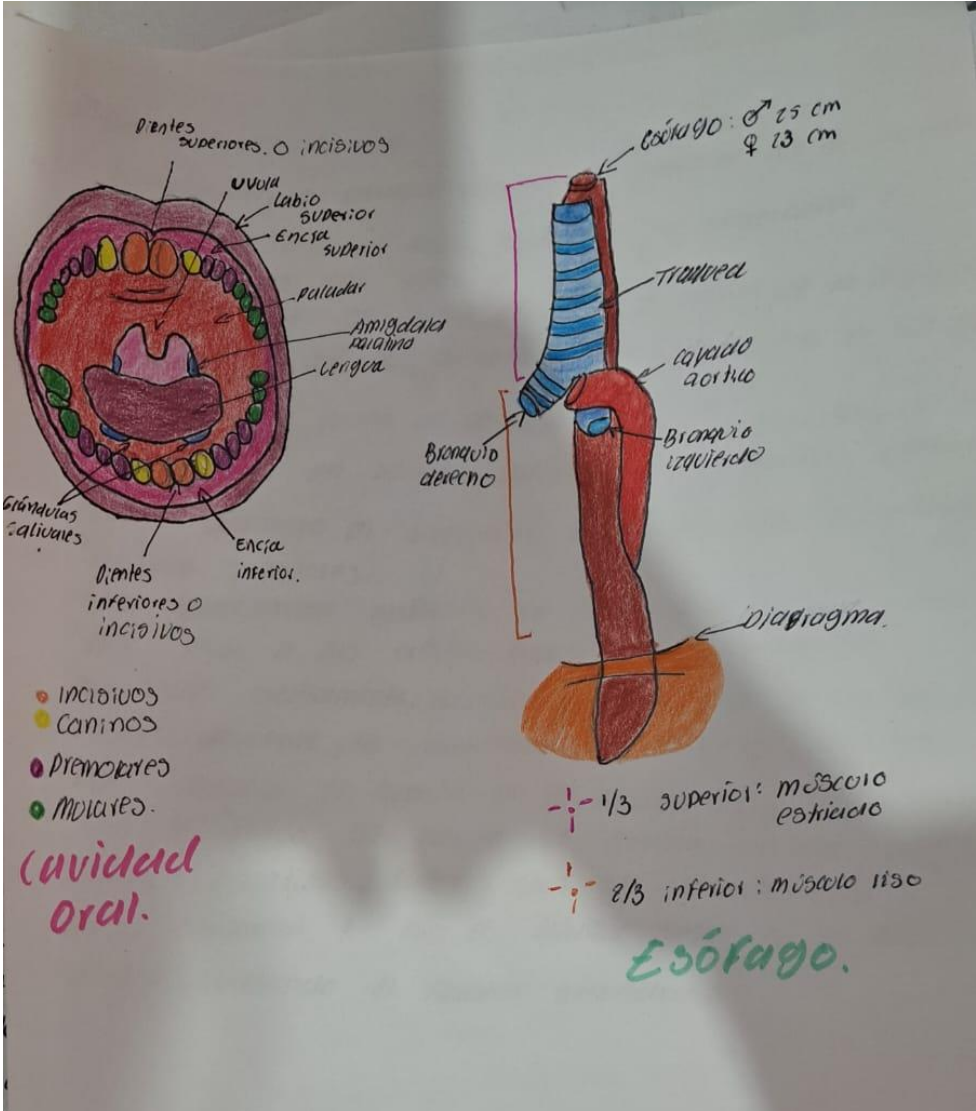 Dientes
superiores. o incisivos
uvula
Labio
superior
Encia
superior
paladar
Amigdala
palatina
Lengua
Glándulas
salivales
Dientes
inferiores o
incisivos
Encia
inferior.
incisivos
Caninos
Premolares
Molares.
Cavidad
oral.
esófago: ♂ 25 cm
♀ 23 cm
Traquea
cayado
aortico
Bronquio
derecho
Bronquio
izquierdo
Diafragma.
1/3 superior: músculo
estriado
2/3 inferior: músculo liso
Esófago.